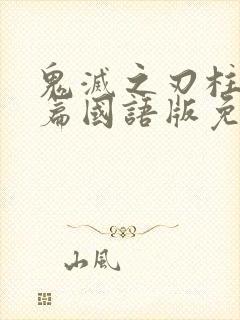 鬼滅之刃柱
篇國語版免
山風